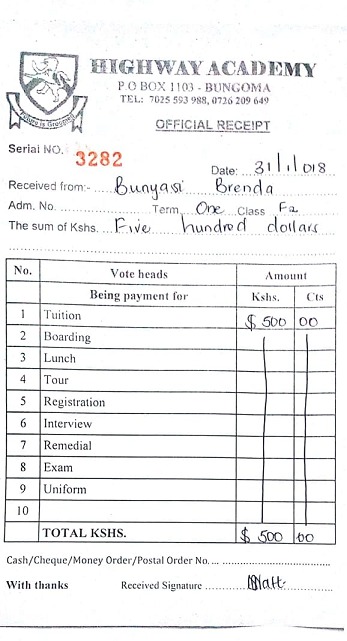 HIGHWAY ACADEMY
P.O BOX 1103 - BUNGOMA
TEL: 7025 593 988, 0726 209 649
OFFICIAL RECEIPT
Serial NO. 3282
Date: 31/1/018
Received from:- Bunyasi Brenda
Adm. No. Term One Class F2
The sum of Kshs. Five hundred dollars
No. Vote heads Amount
Being payment for Kshs. Cts
1 Tuition $ 500 00
2 Boarding
3 Lunch
4 Tour
5 Registration
6 Interview
7 Remedial
8 Exam
9 Uniform
10
TOTAL KSHS. $ 500 00
Cash/Cheque/Money Order/Postal Order No.
With thanks Received Signature